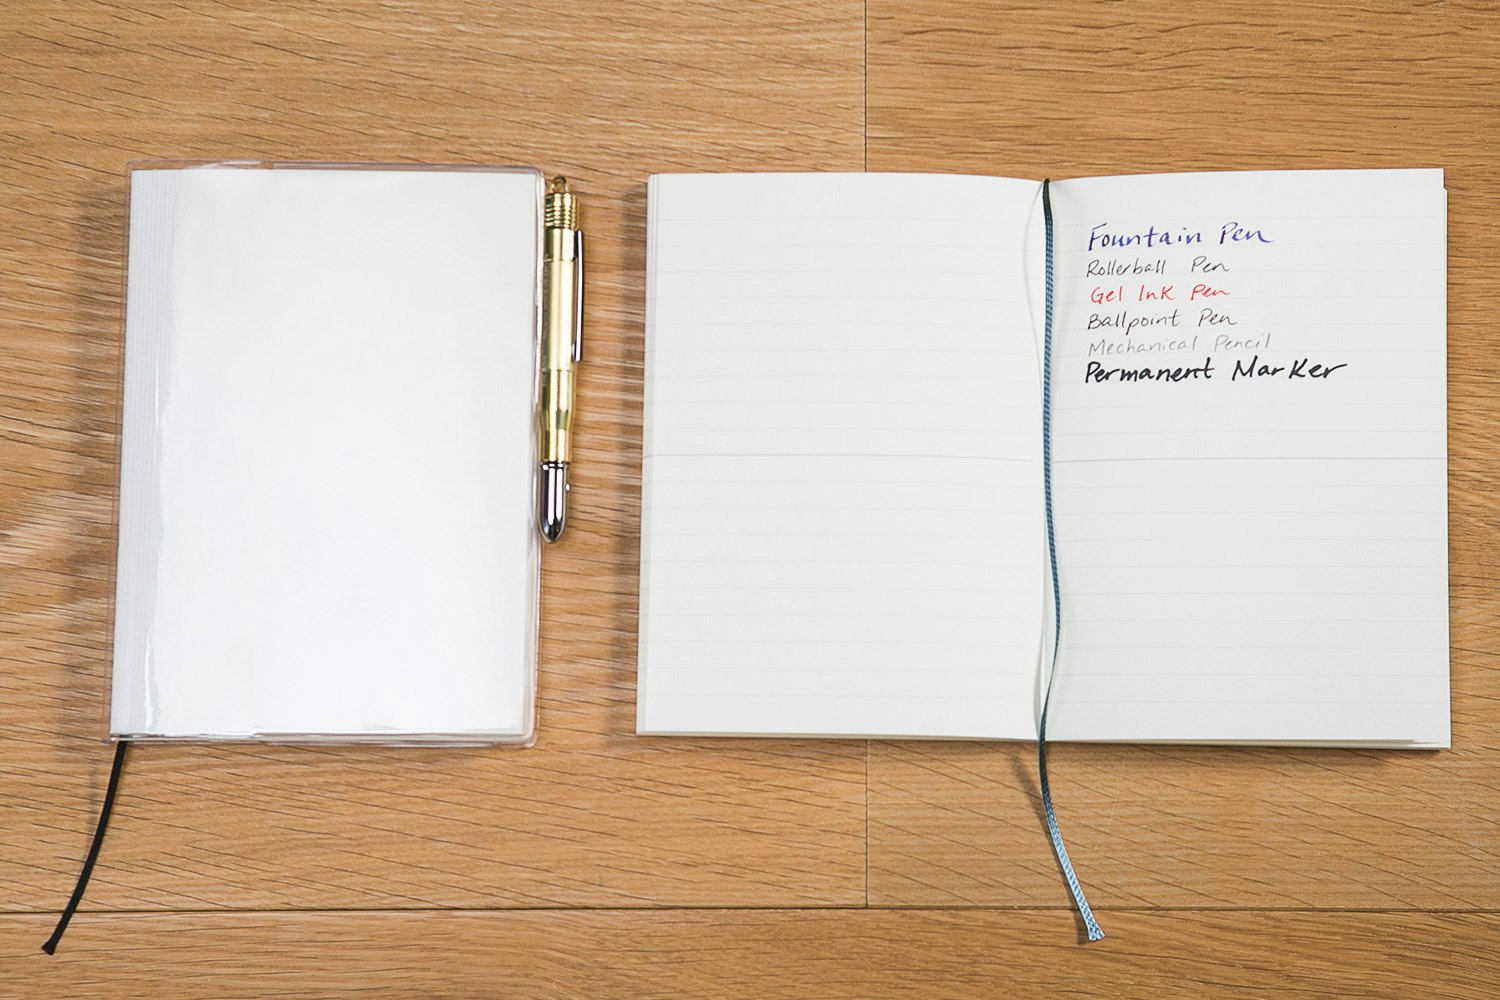 Fountain Pen
Rollerball Pen
Gel Ink Pen
Ballpoint Pen
Mechanical Pencil
Permanent Marker